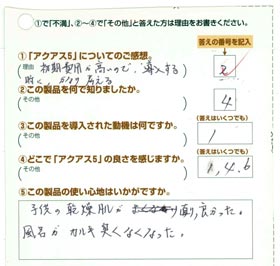 ①で「不満」、②〜④で「その他」と答えた方は理由をお書きください。
答えの番号を記入
①「アクアス5」についてのご感想。
(理由 初期費用が高いので、導入する
時、かなり考える
2
②この製品を何で知りましたか。
(その他
4
③この製品を導入された動機は何ですか。
(答えはいくつでも)
(その他
1
④どこで「アクアス5」の良さを感じますか。
(答えはいくつでも)
(その他
1,4,6
⑤この製品の使い心地はいかがですか。
子供の乾燥肌が 直り良かった。
風呂がカルキ臭くなくなった。